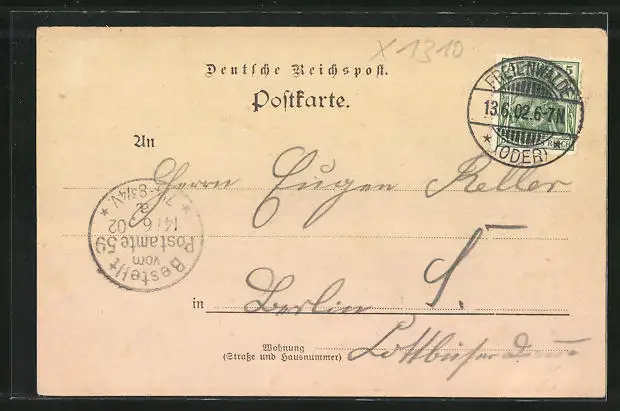 X1310
Deutsche Reichspost.
Postkarte.
5
FREIENWALDE
13.6.02.6-7N
* (ODER) *
REICH
An
Herrn Eugen Keller
Bestellt
vom
Postamte 59
14/6.02
in Berlin S.
Wohnung
(Straße und Hausnummer) Cottbuser